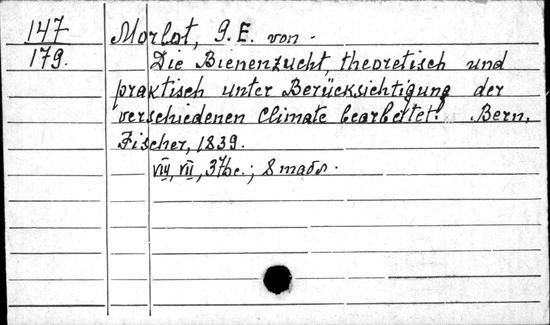 147
179.
Morlot, G. E. von.
Die Bienenzucht, theoretisch und
praktisch unter Berücksichtigung der
verschiedenen Climate bearbeitet. Bern,
Fischer, 1839.
VIII, VII, 376c.; 8 табл.